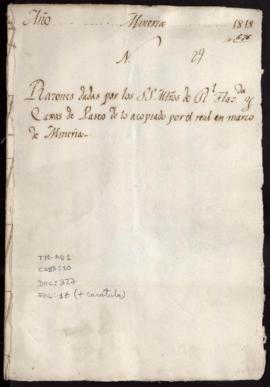 Año Mineria 1818
N. 29
Razones dadas por los SS. Mtros de Rl. Hazda y
Caxas de Pasco de lo acopiado por el real en marco
de Mineria
TM-AD1
CAJA: 10
DOC: 327
FOL: 18 (+ caratula)